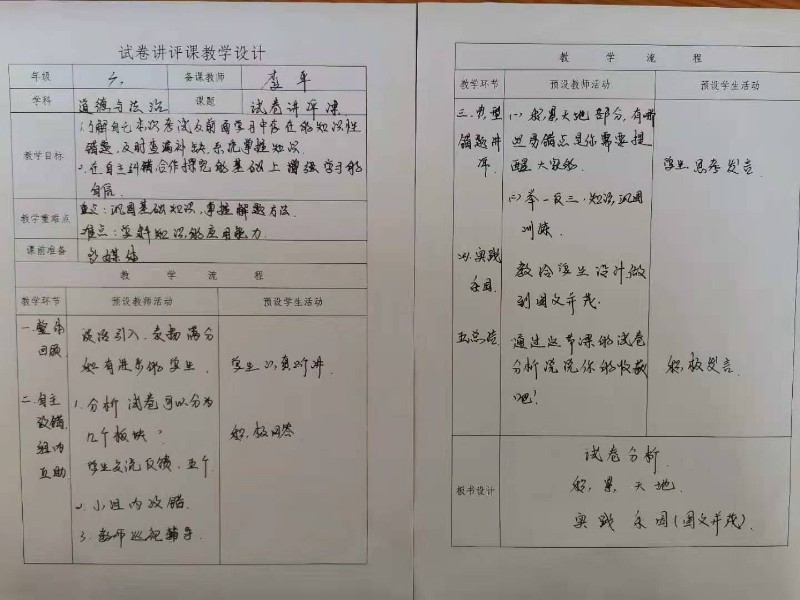 试卷讲评课教学设计
年级 六 备课教师 李平
学科 道德与法治 课题 试卷讲评课
教学目标
1.了解自己本次考试及前面学习中存在的知识性
错题,及时查漏补缺,系统掌握知识
2.在自主纠错,合作探究的基础上增强学习的
自信.
教学重难点
重点:巩固基础知识,掌握解题方法.
难点:学科知识的应用能力.
课前准备 多媒体
教 学 流 程
教学环节 预设教师活动 预设学生活动
一.整体
回顾
谈话引入,表扬满分
和有进步的学生.
学生认真听讲
二.自主
改错
组内
互助
1.分析试卷可以分为
几个板块?
学生交流反馈.五个
2.小组内改错.
3.教师巡视辅导
回答
教 学 流 程
教学环节 预设教师活动 预设学生活动
三.典型
错题讲
评
(一)天地部分,有哪
些易错点是你需要提
醒大家的.
学生思考发言
(二)举一反三,知识巩固
训练.
四.实践
乐园.
教给学生设计,做
到图文并茂.
五.总结
通过这节课的试卷
分析说说你的收获
吧!
发言.
板书设计
试卷分析.
天地.
实践乐园(图文并茂).